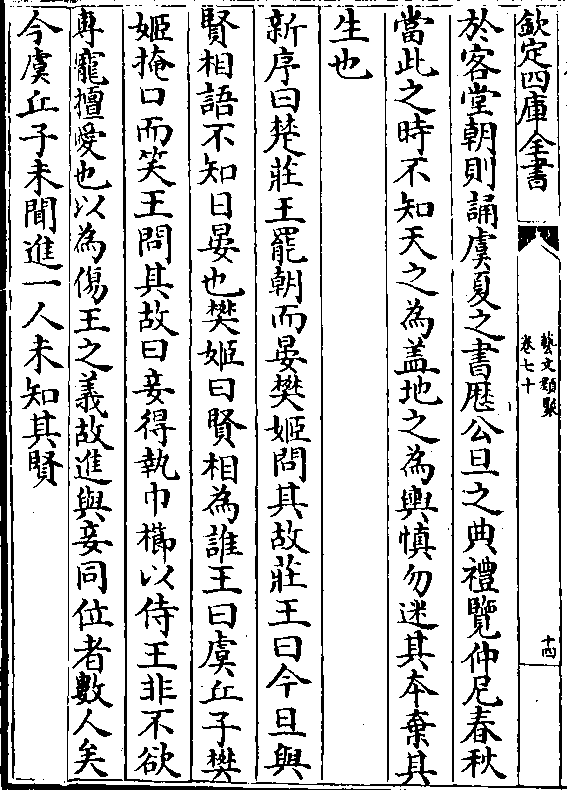 欽定四庫全書
藝文類聚
卷七十
十四
於客堂朝則誦虞夏之書歷公旦之典禮覽仲尼春秋
當此之時不知天之為盖地之為輿慎勿迷其本棄其
生也
新序曰楚莊王罷朝而晏樊姬問其故莊王曰今旦與
賢相語不知日晏也樊姬曰賢相為誰王曰虞丘子樊
姬掩口而笑王問其故曰妾得執巾櫛以侍王非不欲
專寵擅愛也以為傷王之義故進與妾同位者數人矣
今虞丘子未聞進一人未知其賢